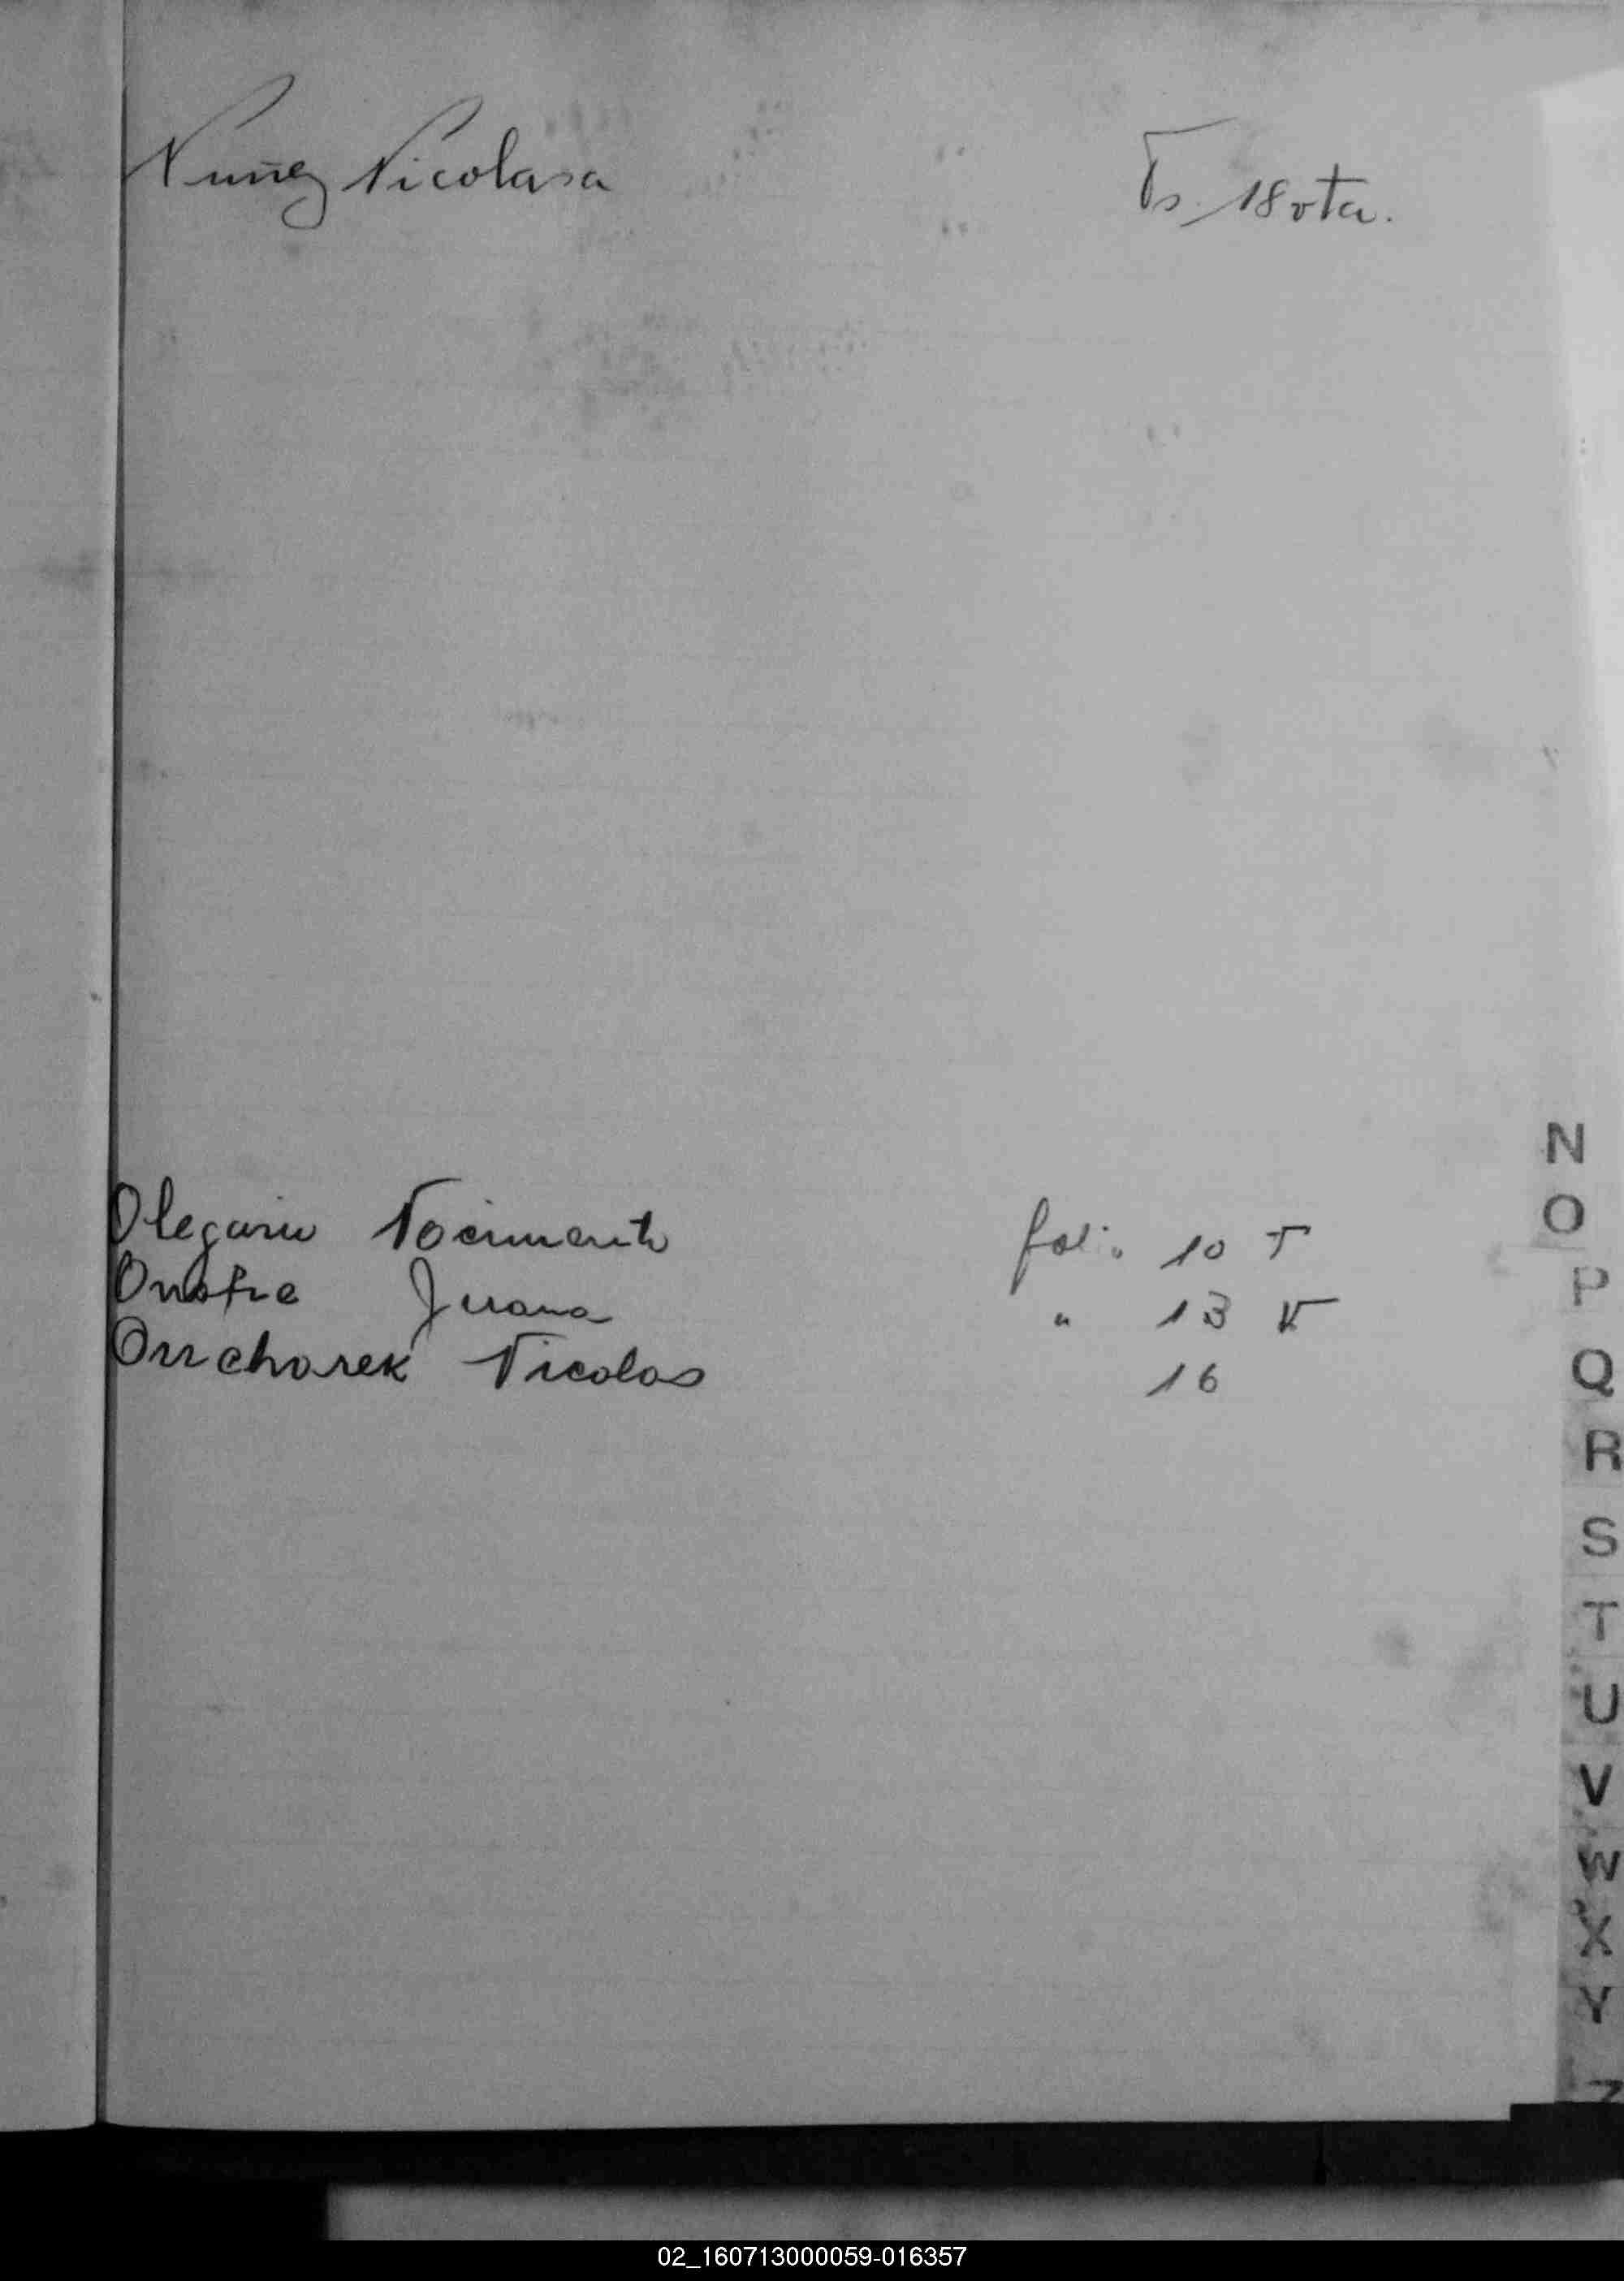 Nuñez Nicolasa Fs. 18 vta.
N
O
Olegario Nacimento folio 10 T
Onofre Juana " 13 V
Onchorek Nicolas 16
P
Q
R
S
T
U
V
W
X
Y
Z
02_160713000059-016357